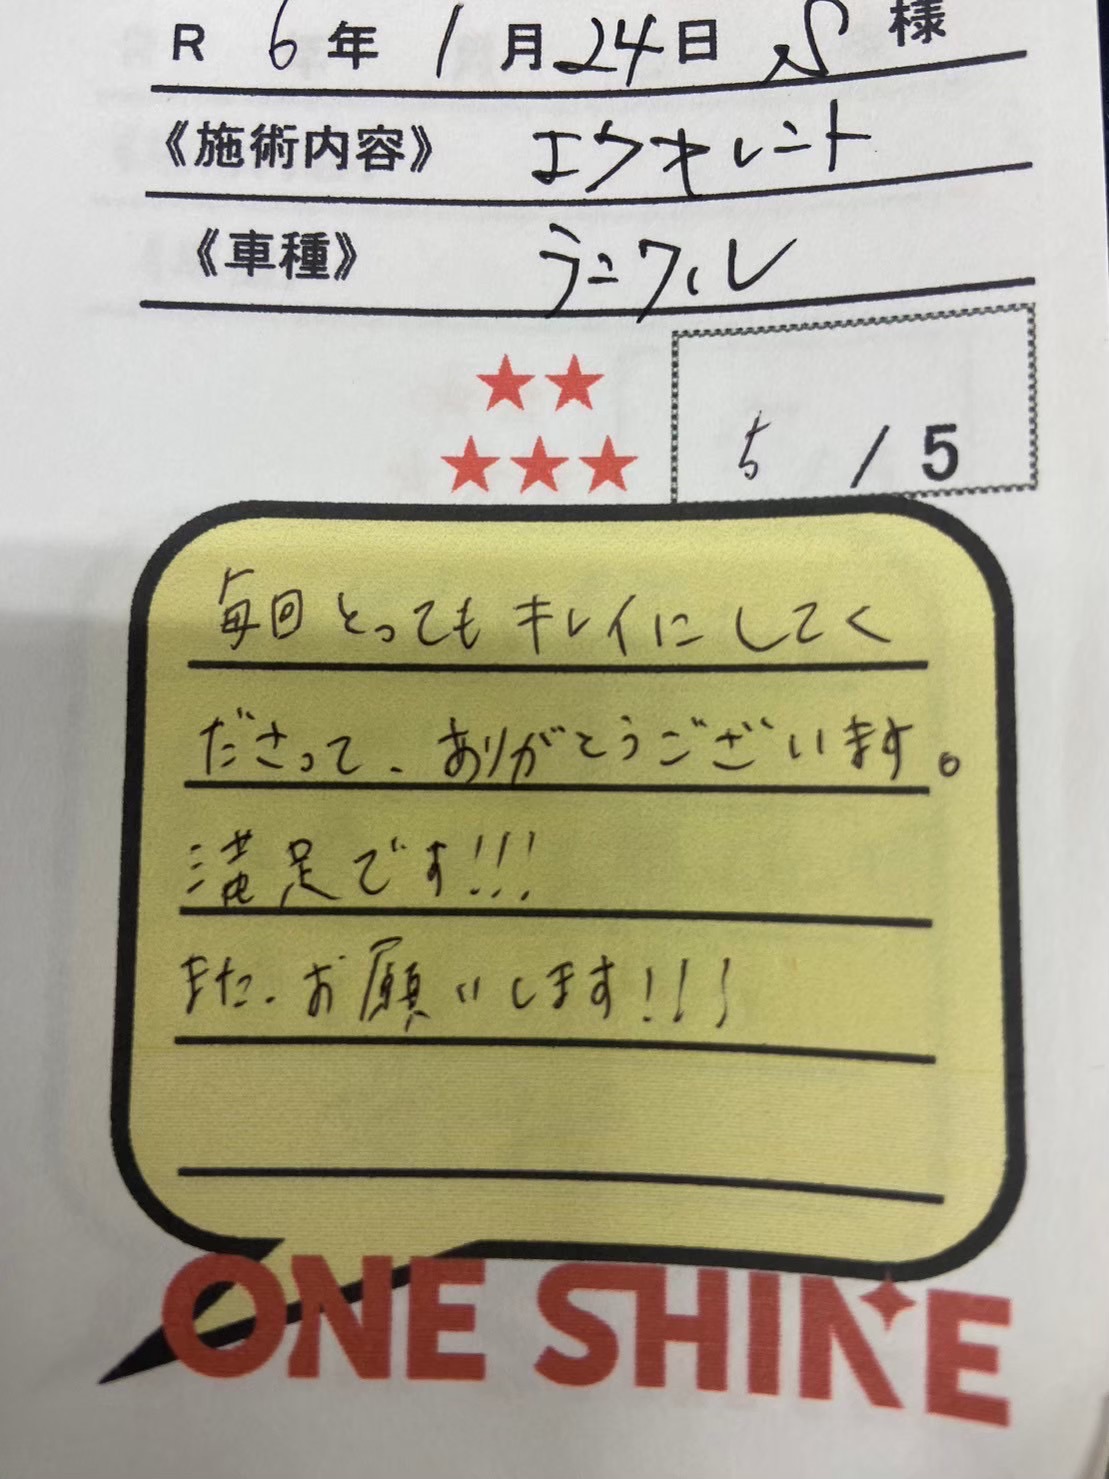 R 6年 1月24日 S 様
《施術内容》 エクキレント
《車種》 ランクル
5 / 5
毎回とってもキレイにしてく
ださって、ありがとうございます。
満足です!!!
また、お願いします!!!
ONE SHINE